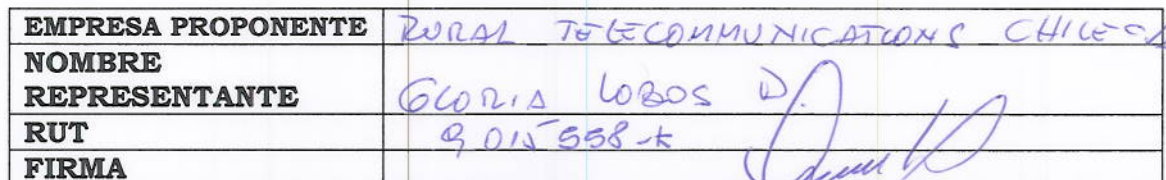 EMPRESA PROPONENTE RURAL TELECOMMUNICATIONS CHILE
NOMBRE
REPRESENTANTE GLORIA LOBOS D.
RUT 9.015 558-K
FIRMA